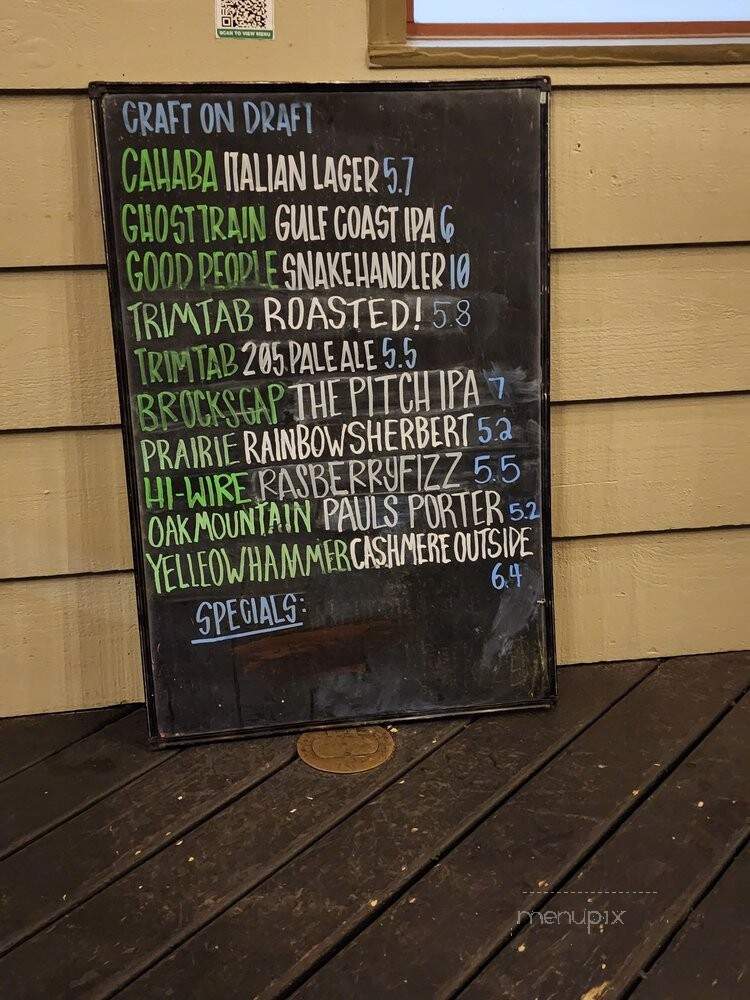 SCAN TO VIEW MENU
CRAFT ON DRAFT
CAHABA ITALIAN LAGER 5.7
GHOST TRAIN GULF COAST IPA 6
GOOD PEOPLE SNAKEHANDLER 10
TRIMTAB ROASTED! 5.8
TRIMTAB 205 PALE ALE 5.5
BROCKSGAP THE PITCH IPA 7
PRAIRIE RAINBOW SHERBERT 5.2
HI-WIRE RASBERRY FIZZ 5.5
OAK MOUNTAIN PAULS PORTER 5.2
YELLEOWHAMMER CASHMERE OUTSIDE
6.4
SPECIALS:
menupix